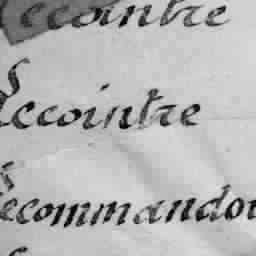 Lecointre
Lecointre
Lecommandou